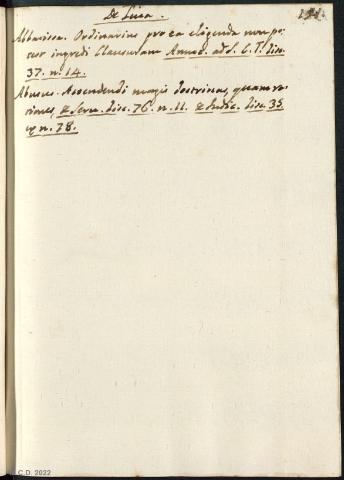 De Luca.
Abbatissa. Ordinarius pro ea eligenda non po-
test ingredi Clausuram Annot. ad S. C. T. disc.
37. n. 14.
Abusus. Attendendi magis doctrinas, quam ra-
tiones, de Serv. disc. 76. n. 11. & de Judic. disc. 35
n. 78.
C.D. 2022